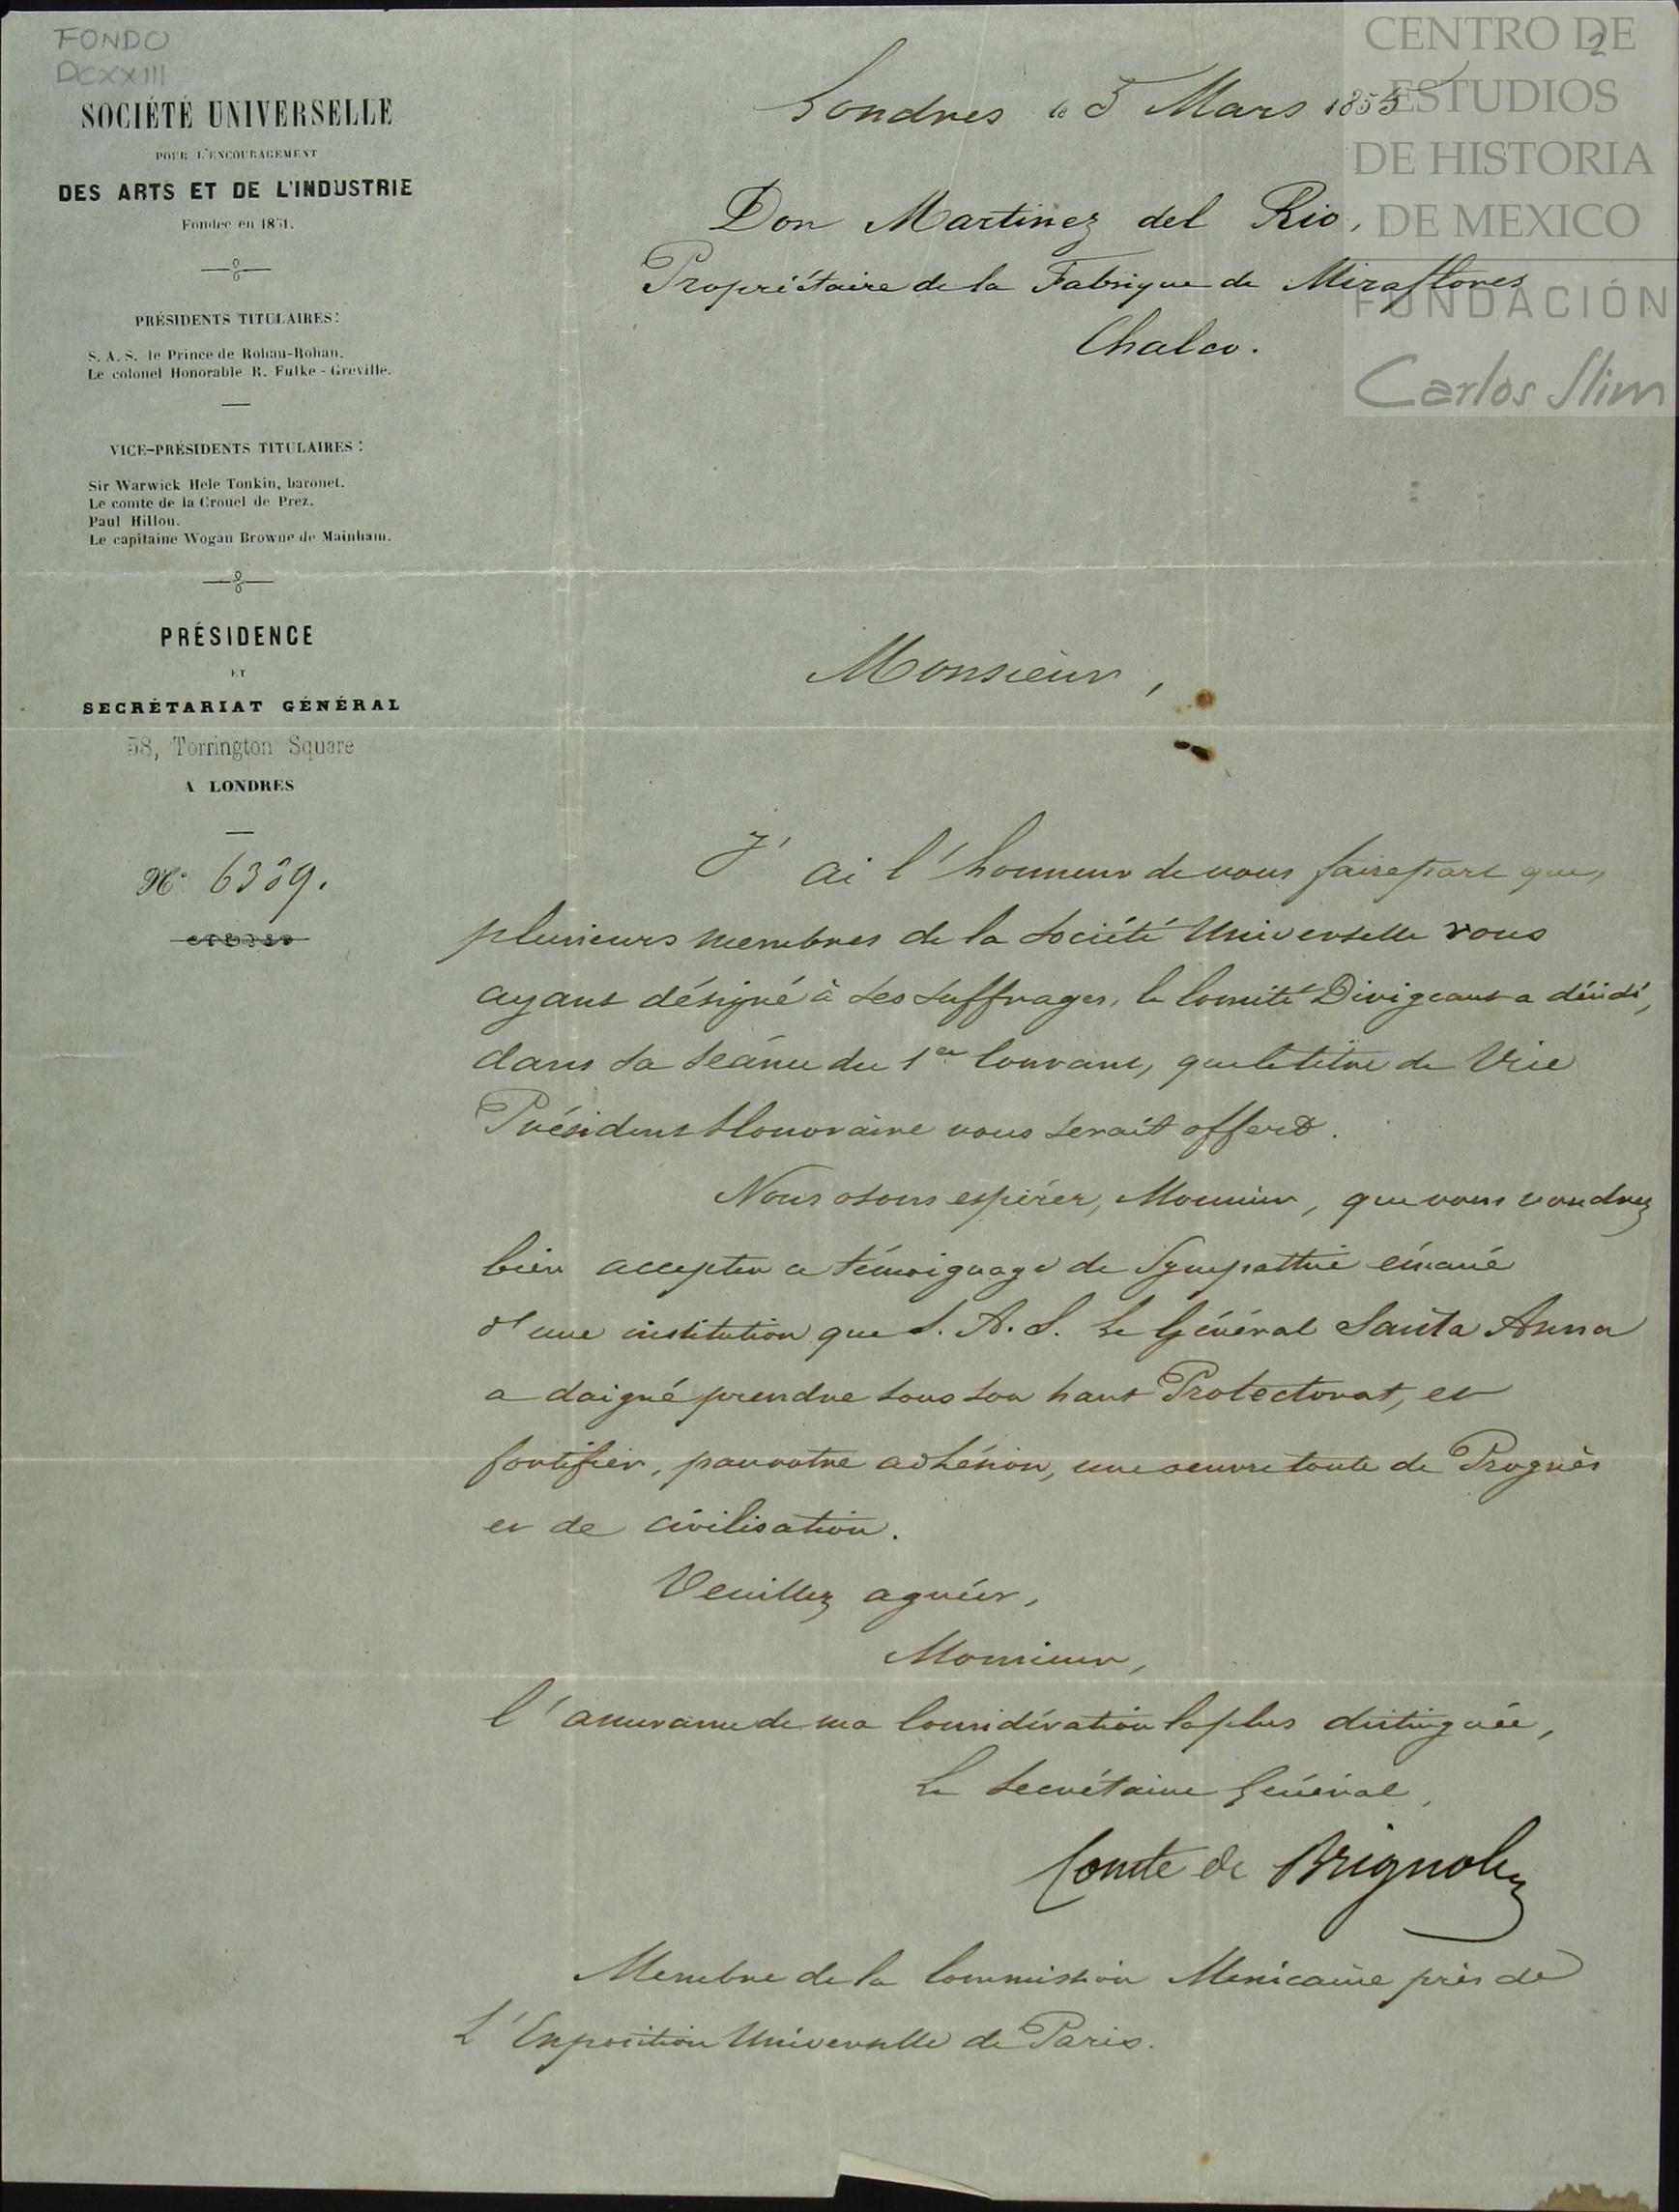 FONDO
DCXXIII
SOCIÉTÉ UNIVERSELLE
POUR L'ENCOURAGEMENT
DES ARTS ET DE L'INDUSTRIE
Fondée en 1851.
PRÉSIDENTS TITULAIRES:
S. A. S. le Prince de Rohan-Rohan.
Le colonel Honorable R. Fulke-Greville.
VICE-PRÉSIDENTS TITULAIRES:
Sir Warwick Hele Tonkin, baronet.
Le comte de la Crouel de Prez.
Paul Hillou.
Le capitaine Wogan Browne de Mainham.
PRÉSIDENCE
ET
SECRÉTARIAT GÉNÉRAL
58, Torrington Square
A LONDRES
No. 6339.
CENTRO DE
ESTUDIOS
DE HISTORIA
DE MEXICO
FUNDACIÓN
Carlos Slim
2
Londres le 5 Mars 1855
Don Martinez del Rio,
Propriétaire de la Fabrique de Miraflores
Chalco.
Monsieur,
J'ai l'honneur de vous faire part que,
plusieurs membres de la Société Universelle vous
ayant désigné à ses suffrages, le Comité Dirigeant a décidé,
dans sa séance du 1er Courant, que le titre de Vice
Président Honoraire vous serait offert.
Nous osons espérer, Monsieur, que vous voudrez
bien accepter ce témoignage de Sympathie émané
d'une institution que S. A. S. Le Général Santa Anna
a daigné prendre sous son haut Protectorat, et
fortifier, par votre adhésion, une oeuvre toute de Progrès
et de civilisation.
Veuillez agréer,
Monsieur,
l'assurance de ma Considération la plus distinguée,
Le Secrétaire Général,
Comte de Brignola
Membre de la Commission Mexicaine près de
L'Exposition Universelle de Paris.